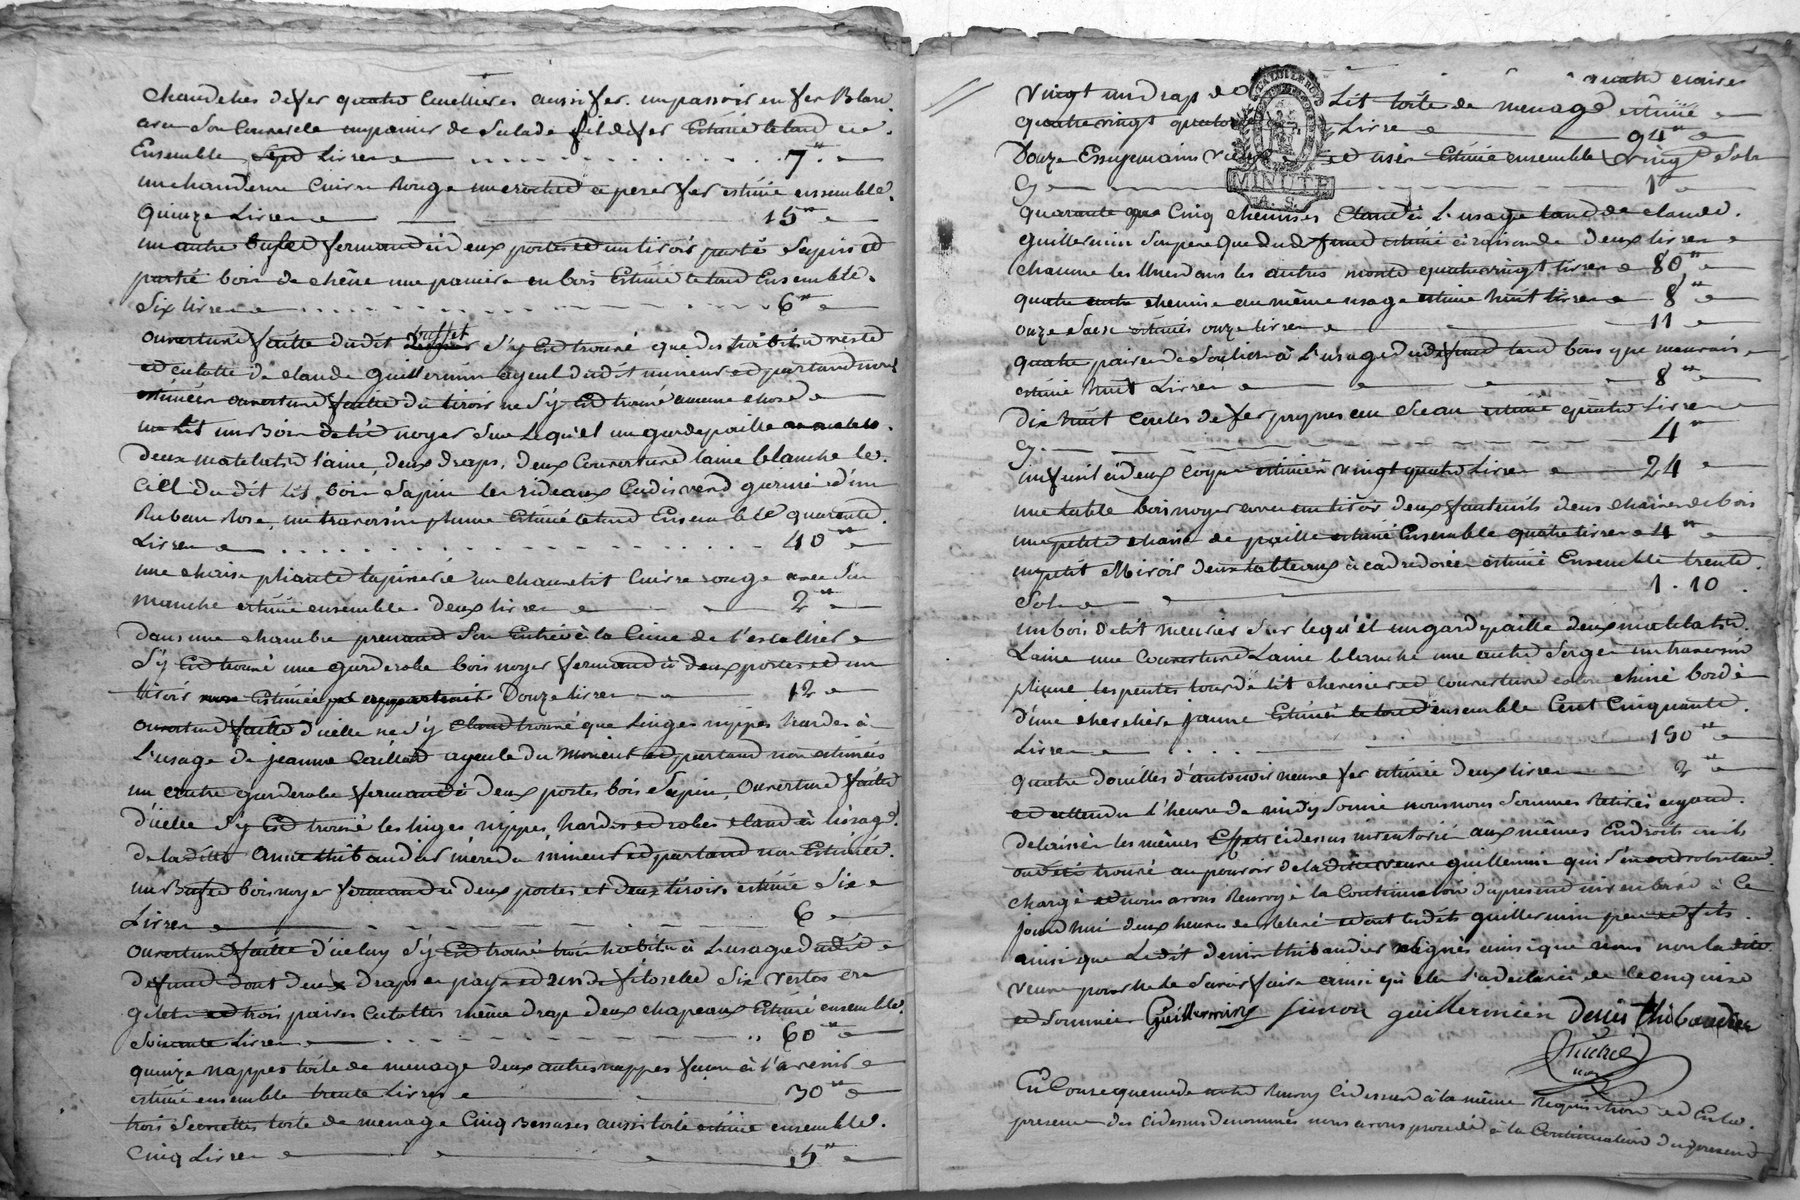 chandelies de fer quatre Cuellieres aussi fer. un passoir en fer Blan
avec Son Couvercle un panier de Salade fil de fer Estimé le tout
Ensemble Sept Livres 7"
un chauderon Cuivre Rouge un crochet a peser fer estimé ensemble.
Quinze Livres 15"
un autre bufed fermand à deux portes et un tiroir partie Sapin et
partie bois de chêne une paniere en bois Estimé le tout Ensemble.
Six livres 6"
ouverture faitte dudit Buffet s'y Est trouvé que des habits veste
et culotte de claude Guillermin ayeul dudit mineur et partand non
estimées ouverture faitte du tiroir ne S'y Est trouvé aucune chose
un Bois de lit noyer Sur Lequ'el un gardepaille
Deux matelats laine, deux draps, deux Couverture laine blanche le
Ciel du dit lit bois Sapin les rideaux Cadis verd garnie d'un
Ruban Rose, un traversin plume Estimé le tout Ensemble quarante
Livres 40"
une chaise pliante tapisserie un chauffelit Cuivre rouge avec Son
Manche estimé ensemble Deux livres 2"
Dans une chambre prenand Son Entrée à la Cime de l'escallier
S'y Est trouvé une garderobe bois noyer fermand à deux portes et un
tiroir Estimée Douze livres 12
ouverture faitte d'icelle ne S'y Est trouvé que Linges nippes hardes à
L'usage de jeanne Caillot ayeule du Mineur et partand non estimées
un autre garderobe fermand à Deux portes bois Sapin, Ouverture faitte
d'icelle S'y Est trouvé les linges nippes, hardes et robes à lusage.
de la ditte Anne thibaudier mère du mineur et partand non Estimées.
un Bufed bois noyer fermand à deux portes et deux tiroirs estimé Six
Livres 6
Ouverture faitte d'iceluy S'y Est trouvé trois habits à L'usage dudit
defund dont deux draps de pays et un de filoselle Six vestes
gilets et trois paires Culottes même drap deux chapeaux Estimé ensemble.
Soixante Livres 60"
quinze nappes toile de menage deux autres nappes
estimé ensemble trente Livres 30"
trois Serviettes toile de menage Cinq Bessaces aussi toile estimé ensemble.
Cinq Livres 5"
vingt un drap de Lit toile de menage estimé
quatrevingt quatorze Livres 94"
Douze Essuyemains vieux et usés Estimé ensemble vingt Sols
Cy 1"
quarante Cinq chemises à L'usage tand de claude.
guillermin Son pere Que dud. fund estimé à raison de Deux livres
chacune les Unes dans les autres monte quatrevingt livres 80"
quatre autre chemise au même usage estimé huit livres 8"
onze Sacs estimés onze livres 11
quatre paires de Souliers à L'usage dud. defund tand bons que mauvais
estimé huit Livres 8"
Dix huit Cercles de fer propres au Seau estimé quatre Livres
Cy 4"
un fusil à deux coups estimé vingt quatre Livres 24
une table bois noyer avec un tiroir deux fauteuils deux chaises de bois
une petite chaise de paille estimé Ensemble quatre livres 4"
un petit Miroir deux tableaux à cadre dorée estimé Ensemble trente.
Sols 1.10
un bois de lit meurier Sur lequ'el un gardepaille deux matelats
Laine une Couverture Laine blanche une autre Serge un traversin
plume les pentes tour de lit et couverture chiné bordé
d'une jaune Estimé le tout ensemble Cent Cinquante.
Livres 150"
quatre douilles d'antonoir neuve fer estimé Deux livres 2"
et attendu l'heure de midy Sonné nous nous Sommes Retirés ayand.
delaissé les mêmes Effets cidessus inventorié aux mêmes Endroits où ils
ont été trouvé au pouvoir de la ditte veuve guillermin qui S'en
chargé et nous avons Renvoyé la Continuation du present inventaire à Ce
jourd'hui deux heures de Relevé et ont lesdits guillermin pere et fils
ainsi que Ledit Denis thibaudier signés ainsi que nous non la ditte
veuve pour ne le Savoir faire ainsi qu'elle l'a déclaré de ce enquise
et Sommée Guillermin Simon guillermin Denis thibaudier
En Consequence de notre Renvoy Cidessus à la même Requisition et En la.
presence des cidessus denommés nous avons procédé à la Continuation du present
MINUTE